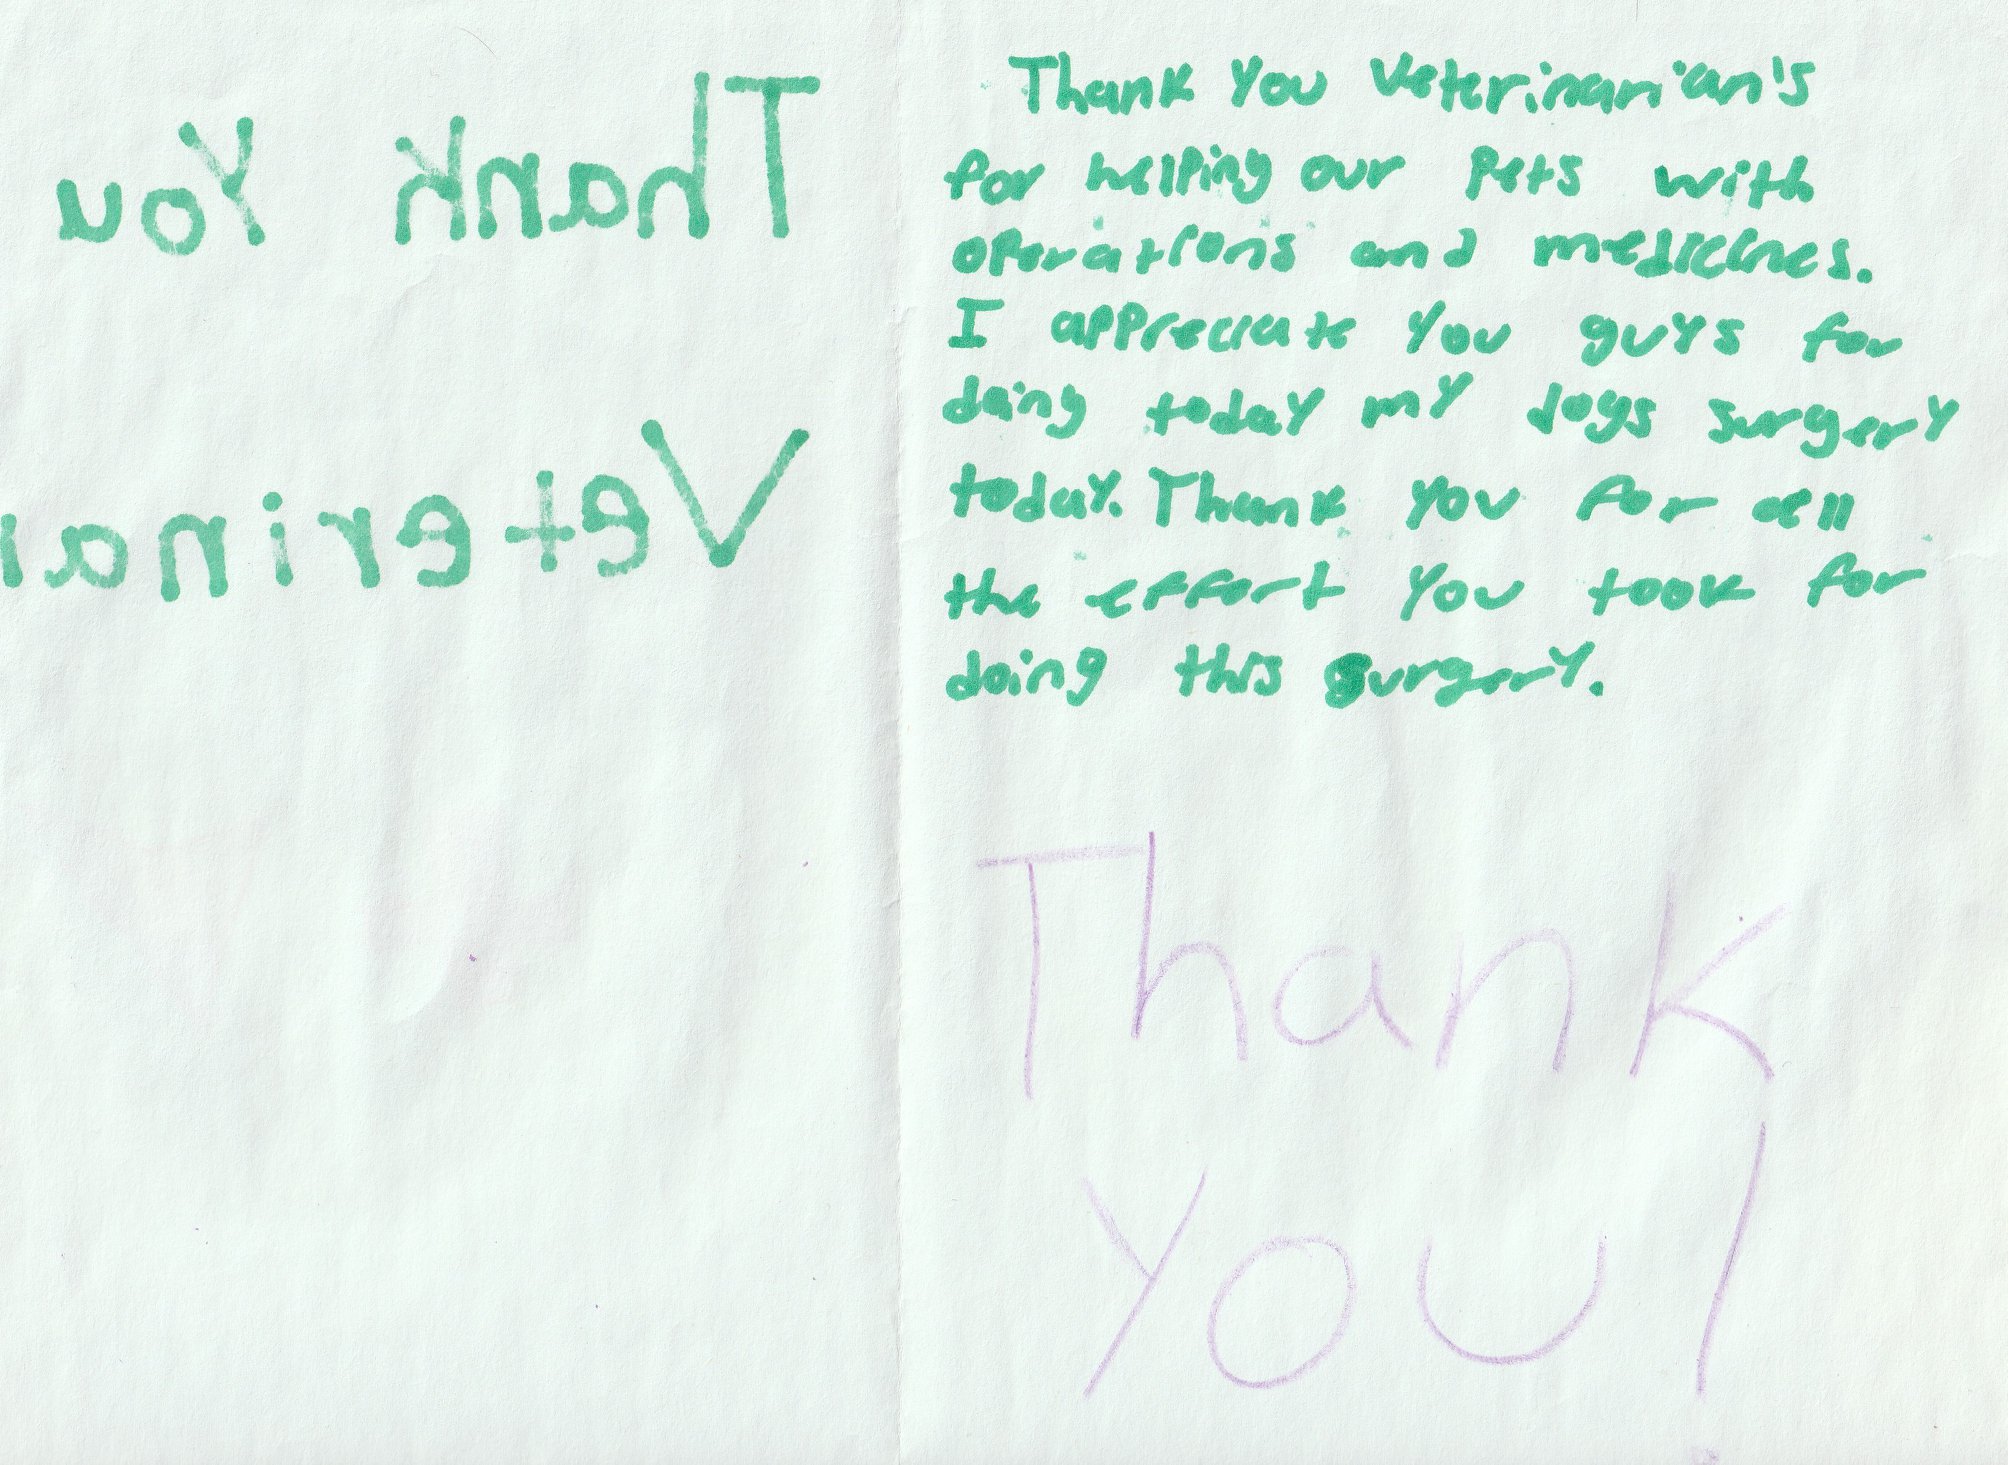 Thank You
Veterinar
Thank You Veterinarian's
for helping our pets with
operations and medicines.
I appreciate you guys for
doing today my dogs surgery
today. Thank you for all
the effort you took for
doing this surgery.
Thank
You!